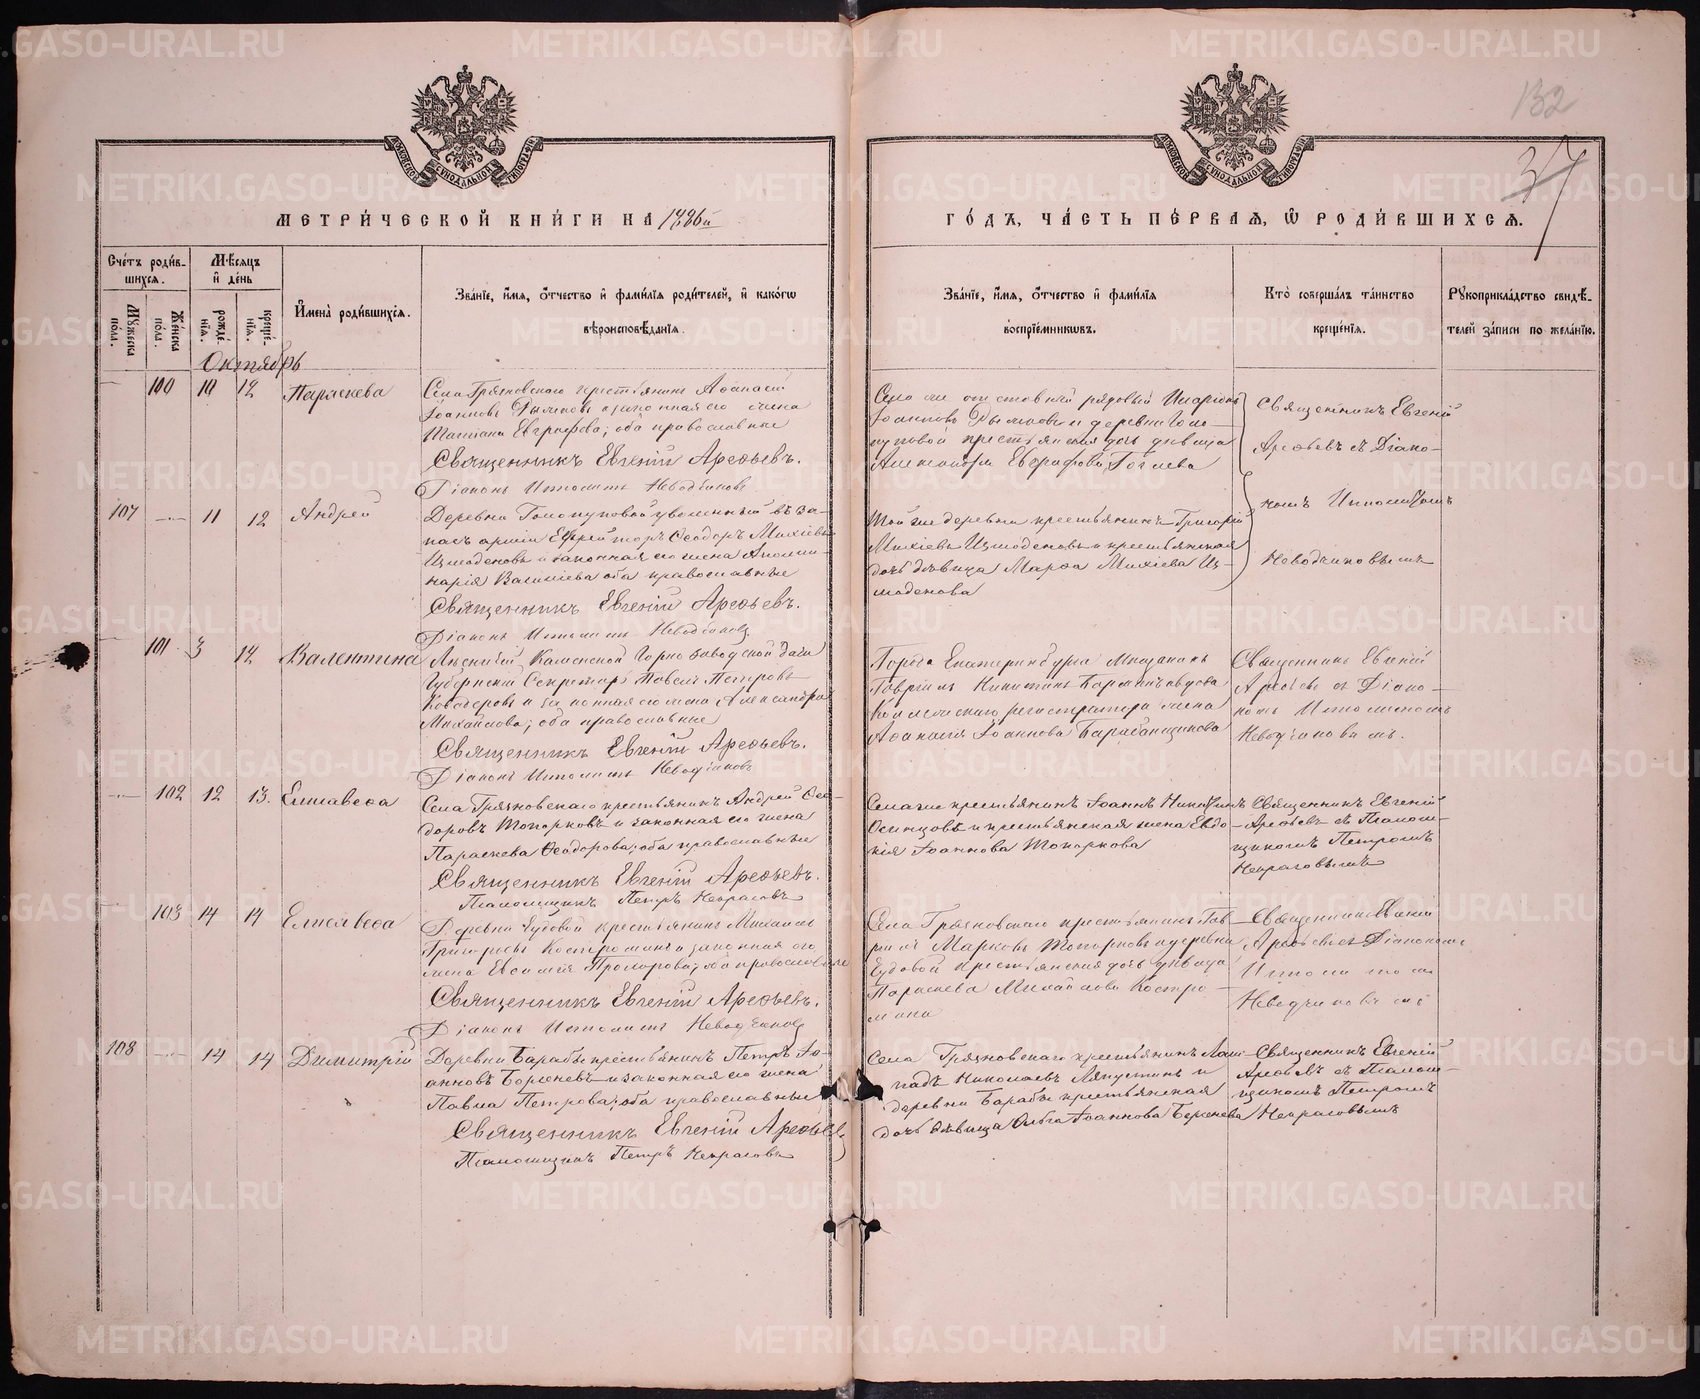 132
37
МЕТРИЧЕСКОЙ КНИГИ НА 1886й
ГОДЪ, ЧАСТЬ ПЕРВАЯ, Ѡ РОДИВШИХСЯ.
Счетъ родившихся.
Мужеска полъ.
Женска полъ.
Мѣсяцъ и день
рожденія.
крещенія.
Имена родившихся.
Званіе, имя, отчество и фамилія родителей, и какогѡ вѣроисповѣданія.
Званіе, имя, отчество и фамилія воспріемникѡвъ.
Кто совершалъ таинство крещенія.
Рукоприкладство свидѣтелей записи по желанію.
Октябрь
100 10 12 Параскева
Села Грязновскаго крестьянинъ Аѳанасій
Іоанновъ Дымковъ и законная его жена
Татіана Евграфова; оба православные
Священникъ Евгеній Арефьевъ.
Діаконъ Ипполитъ
Села же отставной рядовый Иларіонъ
Іоанновъ Дымковъ и деревни
крестьянская дочь дѣвица
Александра Евграфова
Священникъ Евгеній
Арефьевъ съ Діако-
номъ Ипполитомъ
107 11 12 Андрей
Деревни уволенный въ за-
пасъ арміи Ефрейторъ Ѳеодоръ Михіевъ
Измоденовъ и законная его жена Аполли-
нарія Василіева оба православные
Священникъ Евгеній Арефьевъ.
Діаконъ Ипполитъ
Той же деревни крестьянинъ Григорій
Михіевъ Измоденовъ и крестьянская
дочь дѣвица Марѳа Михіева Из-
моденова
101 3 12 Валентина
Лѣсничій Каменской Горнозаводской дачи
Губернскій Секретарь Павелъ Петровъ
и законная его жена Александра
Михайлова; оба православные
Священникъ Евгеній Арефьевъ.
Діаконъ Ипполитъ
Города Екатеринбурга Мѣщанинъ
Гавріилъ Никитинъ
Коллежскаго регистратора жена
Аѳанасія Іоаннова Барабанщикова
Священникъ Евгеній
Арефьевъ съ Діако-
номъ Ипполитомъ
102 12 13. Елисавеѳа
Села Грязновскаго крестьянинъ Андрей Ѳео-
доровъ Топорковъ и законная его жена
Параскева Ѳеодорова; оба православные
Священникъ Евгеній Арефьевъ.
Псаломщикъ Петръ Некрасовъ
Села же крестьянинъ Іоаннъ Никитинъ
Осинцовъ и крестьянская жена Евдо-
кія Іоаннова Топоркова
Священникъ Евгеній
Арефьевъ съ Псалом-
щикомъ Петромъ
Некрасовымъ
103 14 14 Елисавеѳа
Деревни Чудовой крестьянинъ Михаилъ
Григорьевъ Костроминъ и законная его
жена Евѳимія Прохорова; оба православные
Священникъ Евгеній Арефьевъ.
Діаконъ Ипполитъ
Села Грязновскаго крестьянинъ Гав-
риилъ Марковъ Топорковъ и деревни
Чудовой крестьянская дочь дѣвица
Параскева Михайлова Костро-
мина
Священникъ Евгеній
Арефьевъ съ Діакономъ
Ипполитомъ
108 14 14 Димитрій
Деревни Барабы крестьянинъ Петръ Іо-
анновъ Берсеневъ и законная его жена
Павла Петрова; оба православные
Священникъ Евгеній Арефьевъ
Псаломщикъ Петръ Некрасовъ
Села Грязновскаго крестьянинъ
Николаевъ Ляпустинъ и
деревни Барабы крестьянская
дочь дѣвица Ольга Іоаннова Берсенева
Священникъ Евгеній
Арефьевъ съ Псалом-
щикомъ Петромъ
Некрасовымъ
METRIKI.GASO-URAL.RU